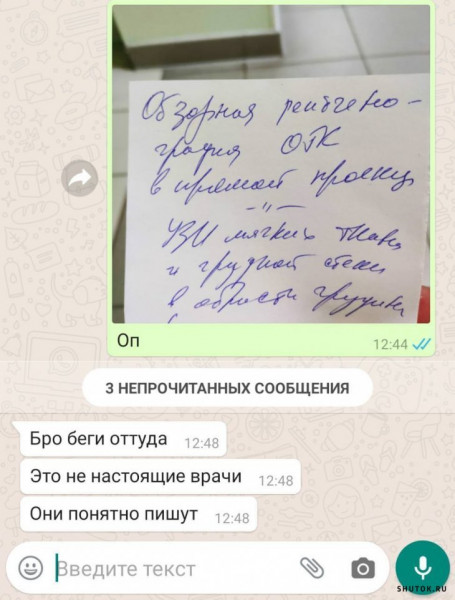 Обзорная рентгено-
графия ОГК
в прямой проекции
-"-
УЗИ мягких тканей
и грудной стенки
в области грудины
Оп
12:44
3 НЕПРОЧИТАННЫХ СООБЩЕНИЯ
Бро беги оттуда 12:48
Это не настоящие врачи 12:48
Они понятно пишут 12:48
Введите текст
SHUTOK.RU